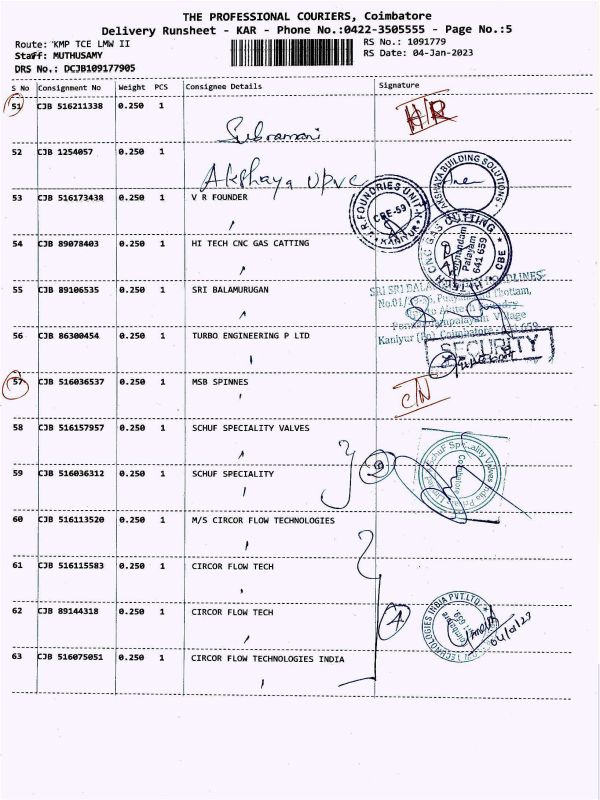 THE PROFESSIONAL COURIERS, Coimbatore
Delivery Runsheet - KAR - Phone No.:0422-3505555 - Page No.:5
Route: KMP TCE LMW II
RS No.: 1091779
Staff: MUTHUSAMY
RS Date: 04-Jan-2023
DRS No.: DCJB109177905
S No Consignment No Weight PCS Consignee Details Signature
51 CJB 516211338 0.250 1
Subramani
52 CJB 1254057 0.250 1
Akshaya upvc
AKSHAYA BUILDING SOLUTIONS
53 CJB 516173438 0.250 1 V R FOUNDER
R FOUNDRIES UNIT
CBE-59
KANIYUR
54 CJB 89078403 0.250 1 HI TECH CNC GAS CATTING
HI-TECH CNC GAS CUTTING
Palayam
641 659
CBE
55 CJB 89106535 0.250 1 SRI BALAMURUGAN
56 CJB 86300454 0.250 1 TURBO ENGINEERING P LTD
SECURITY
57 CJB 516036537 0.250 1 MSB SPINNES
C/N
58 CJB 516157957 0.250 1 SCHUF SPECIALITY VALVES
59 CJB 516036312 0.250 1 SCHUF SPECIALITY
Coimbatore
60 CJB 516113520 0.250 1 M/S CIRCOR FLOW TECHNOLOGIES
61 CJB 516115583 0.250 1 CIRCOR FLOW TECH
62 CJB 89144318 0.250 1 CIRCOR FLOW TECH
4
04/01/23
63 CJB 516075051 0.250 1 CIRCOR FLOW TECHNOLOGIES INDIA